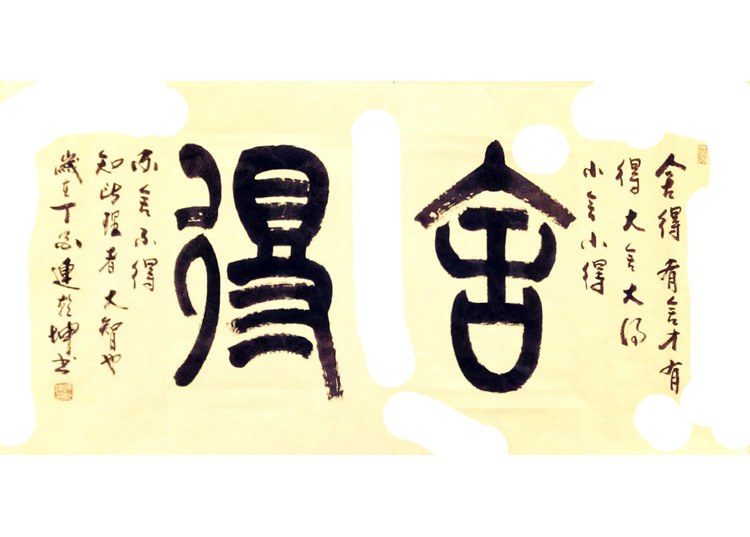 舍得有舍才有
得大舍大得
小舍小得
舍得
不舍不得
知此理者大智也
歲在丁亥連乾坤书